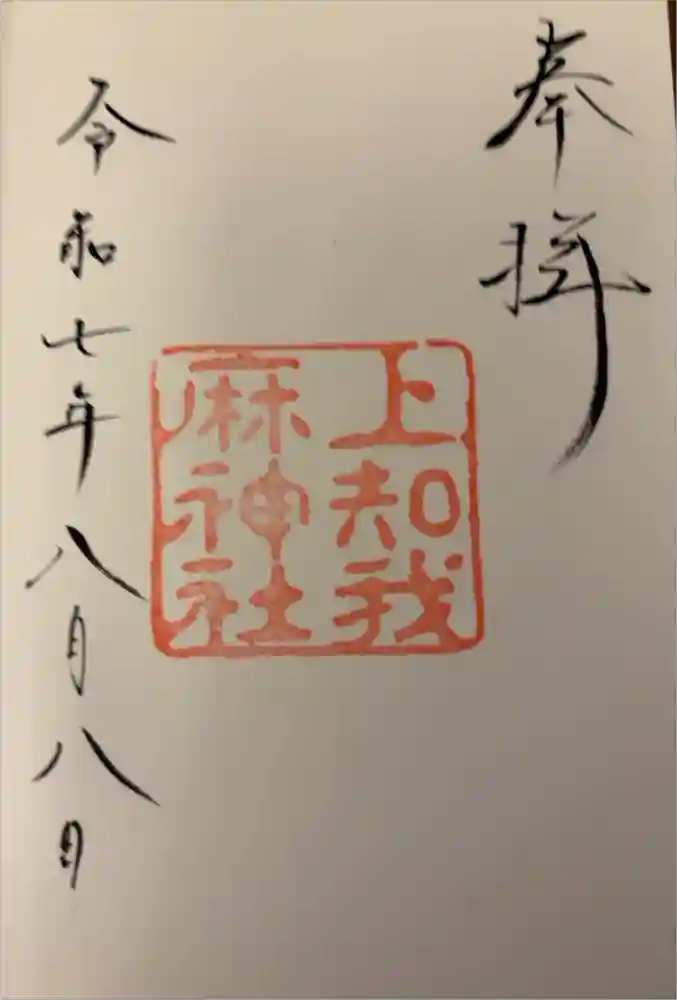 奉拝
上知我
麻神社
令和七年八月八日